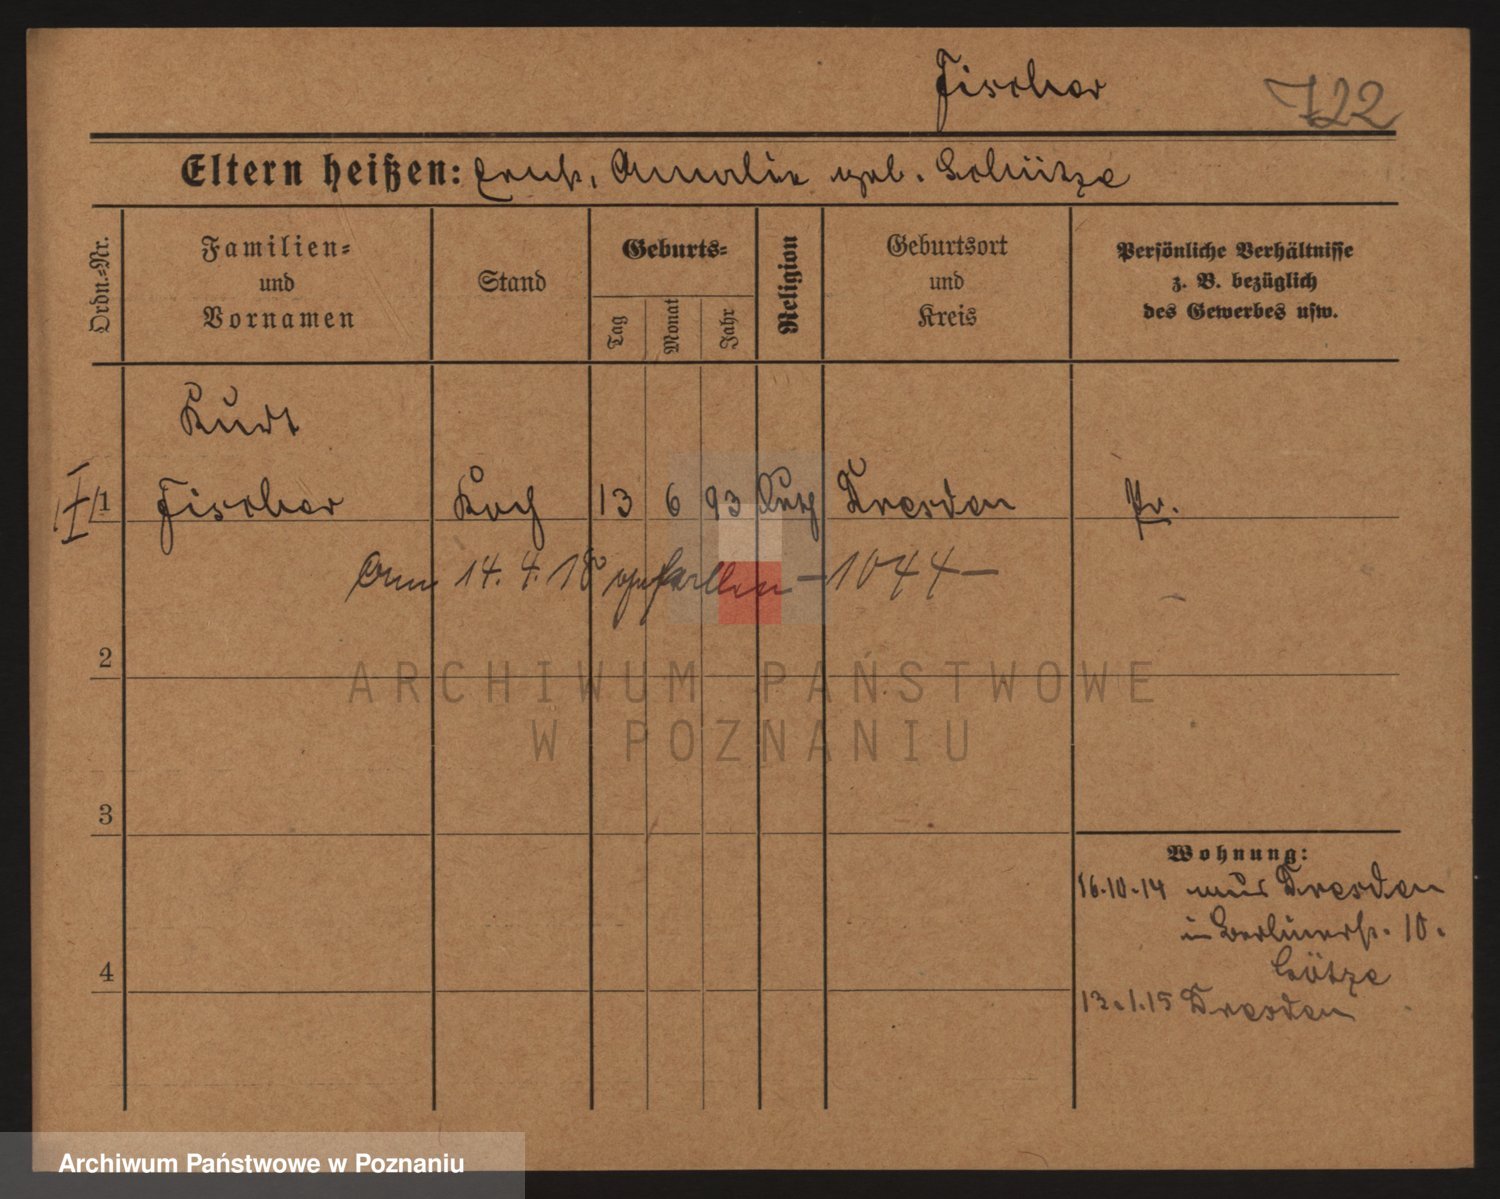 Fischer
722
Eltern heißen: Ernst, Amalie geb. Schütze
Ordn.=Nr.
Familien=
und
Vornamen
Stand
Geburts=
Tag
Monat
Jahr
Religion
Geburtsort
und
Kreis
Persönliche Verhältnisse
z. B. bezüglich
des Gewerbes usw.
Kurt
1 Fischer Koch 13 6 93 Luth Dresden Pr.
Am 14. 4. 18 gefallen – 1044 –
2
3
4
Wohnung:
16.10.14 aus Dresden
in Berlinerstr. 10.
Götze
13.1.15 Dresden
ARCHIWUM PAŃSTWOWE
W POZNANIU
Archiwum Państwowe w Poznaniu